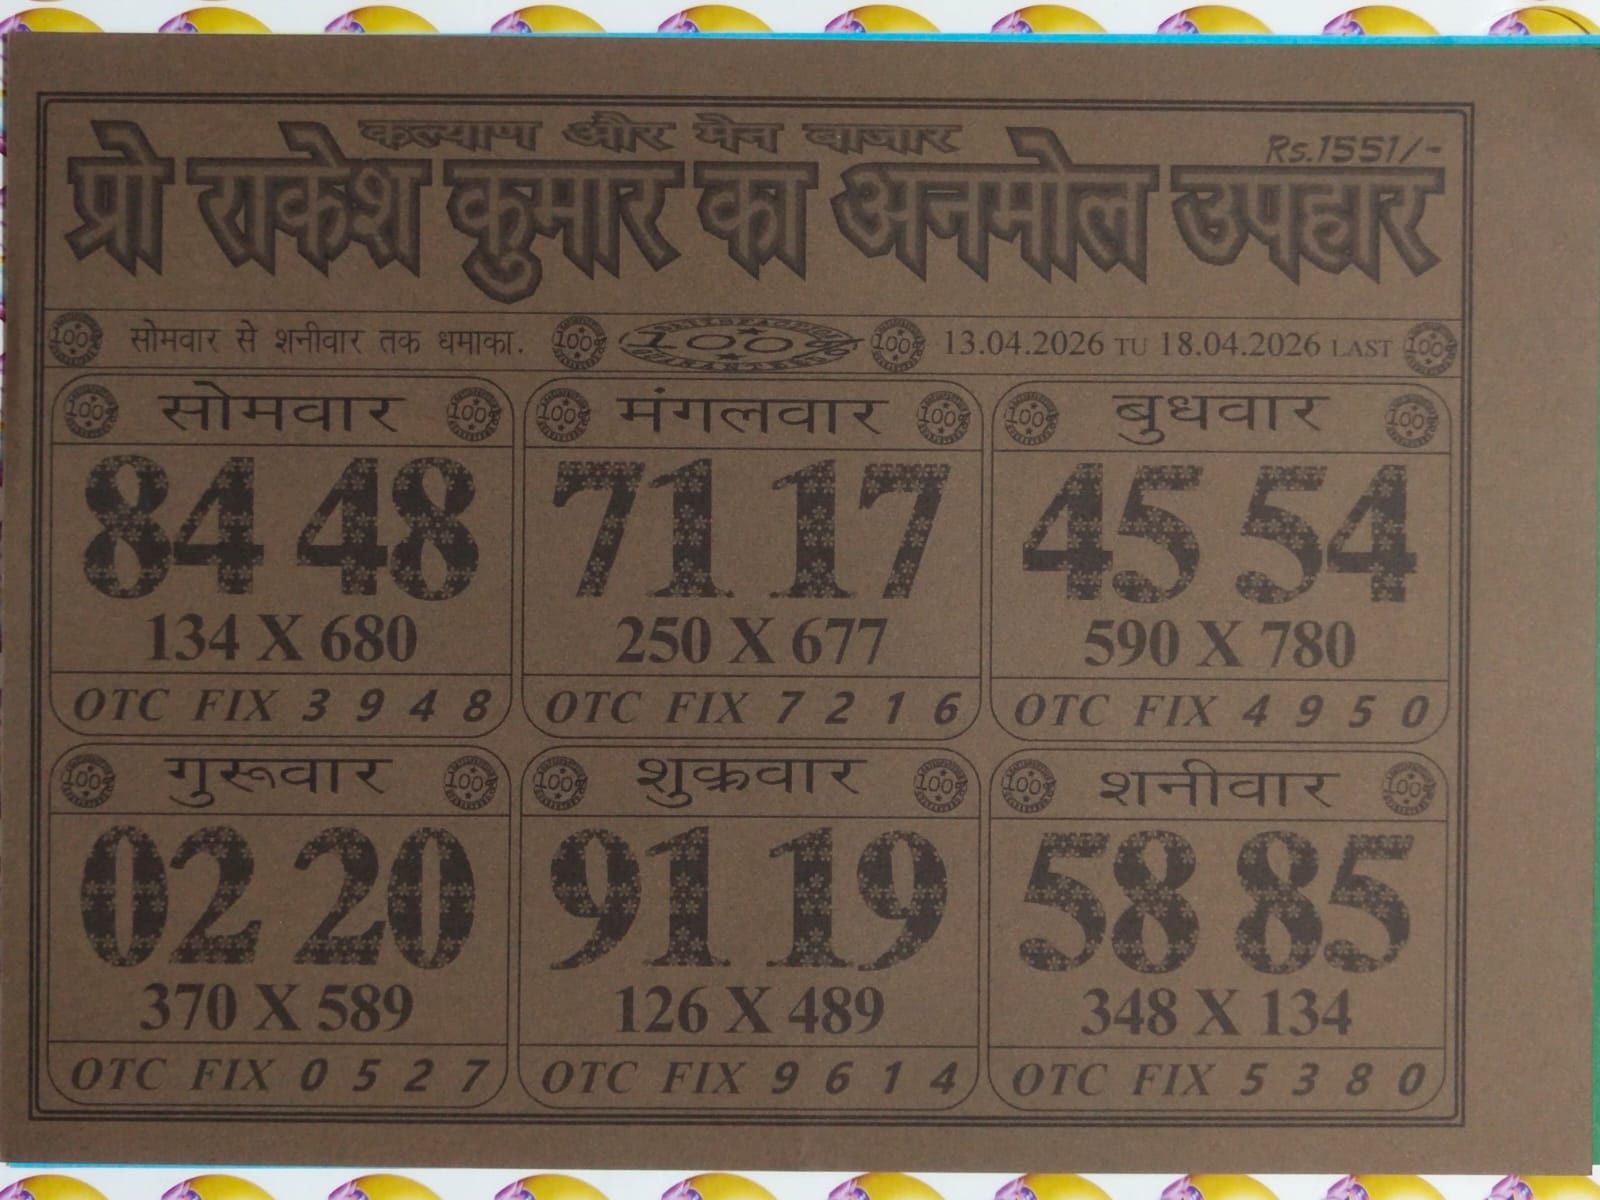 कल्याण और मेन बाजार
Rs.1551/-
प्रो राकेश कुमार का अनमोल उपहार
सोमवार से शनीवार तक धमाका.
100
13.04.2026 TU 18.04.2026 LAST
सोमवार
84 48
134 X 680
OTC FIX 3 9 4 8
मंगलवार
71 17
250 X 677
OTC FIX 7 2 1 6
बुधवार
45 54
590 X 780
OTC FIX 4 9 5 0
गुरूवार
02 20
370 X 589
OTC FIX 0 5 2 7
शुक्रवार
91 19
126 X 489
OTC FIX 9 6 1 4
शनीवार
58 85
348 X 134
OTC FIX 5 3 8 0